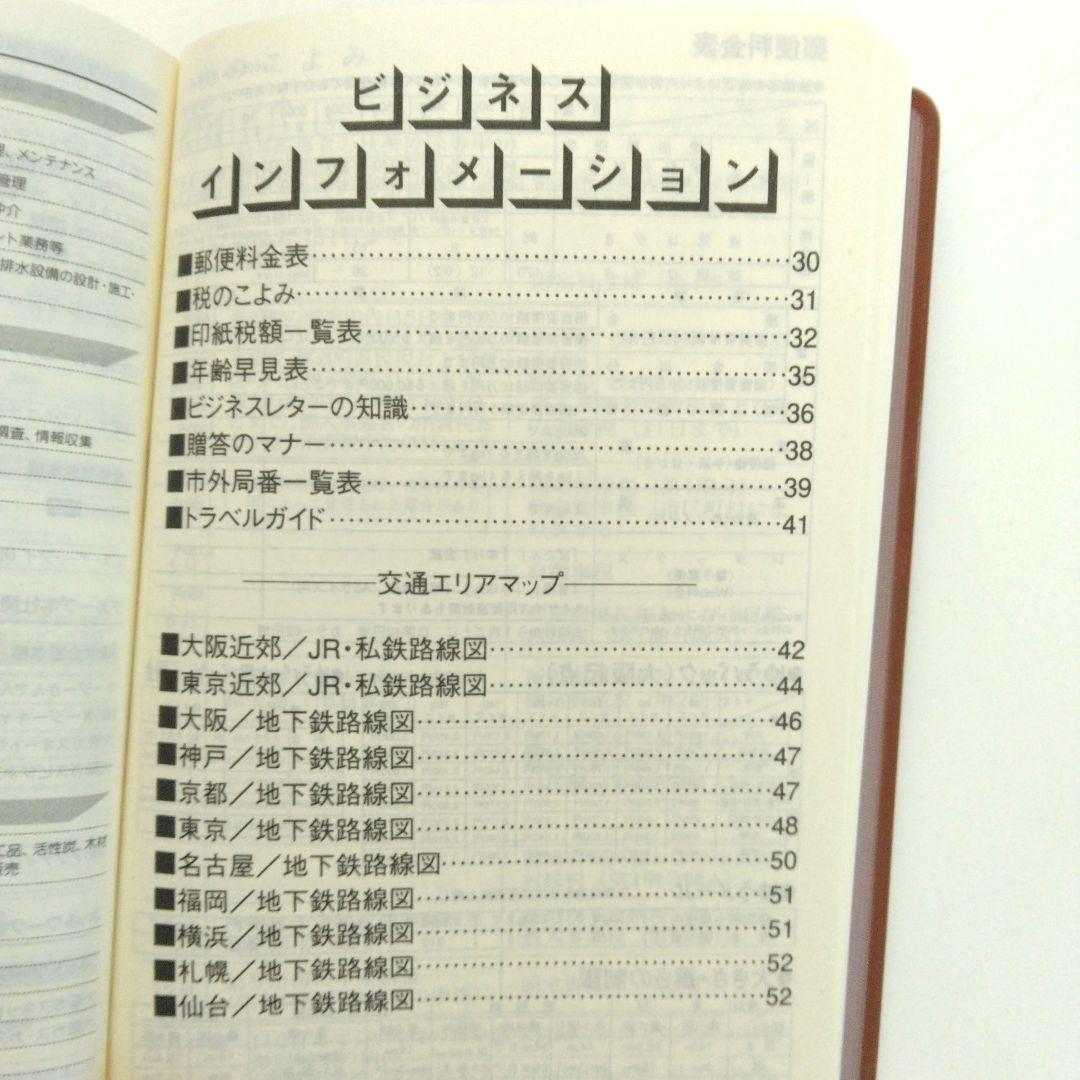 ビジネス
インフォメーション
■郵便料金表……30
■税のこよみ……31
■印紙税額一覧表……32
■年齢早見表……35
■ビジネスレターの知識……36
■贈答のマナー……38
■市外局番一覧表……39
■トラベルガイド……41
交通エリアマップ
■大阪近郊／JR・私鉄路線図……42
■東京近郊／JR・私鉄路線図……44
■大阪／地下鉄路線図……46
■神戸／地下鉄路線図……47
■京都／地下鉄路線図……47
■東京／地下鉄路線図……48
■名古屋／地下鉄路線図……50
■福岡／地下鉄路線図……51
■横浜／地下鉄路線図……51
■札幌／地下鉄路線図……52
■仙台／地下鉄路線図……52
、メンテナンス
管理
仲介
ント業務等
排水設備の設計・施工・
調査、情報収集
工品、活性炭、木材
販売